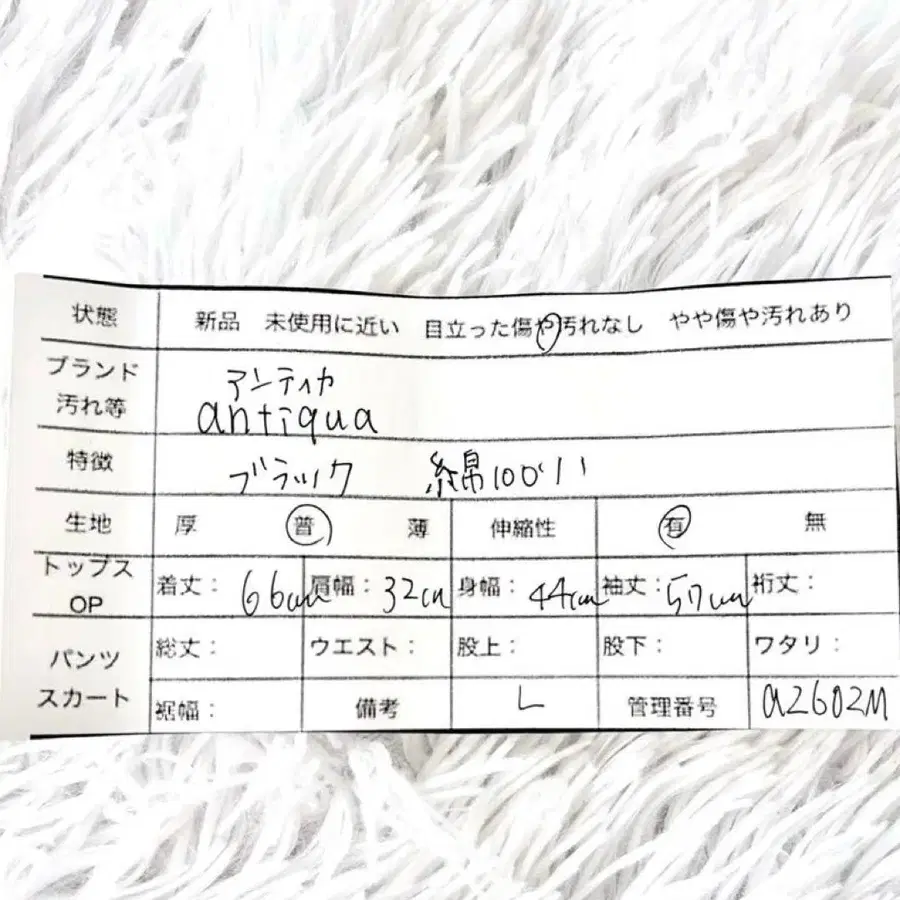 状態 新品 未使用に近い 目立った傷や汚れなし やや傷や汚れあり
ブランド
汚れ等
アンティカ
antiqua
特徴 ブラック 綿100%
生地 厚 普 薄 伸縮性 有 無
トップス
OP
着丈: 66cm 肩幅: 32cm 身幅: 44cm 袖丈: 57cm 裄丈:
パンツ
スカート
総丈: ウエスト: 股上: 股下: ワタリ:
裾幅: 備考 L 管理番号 a2602M